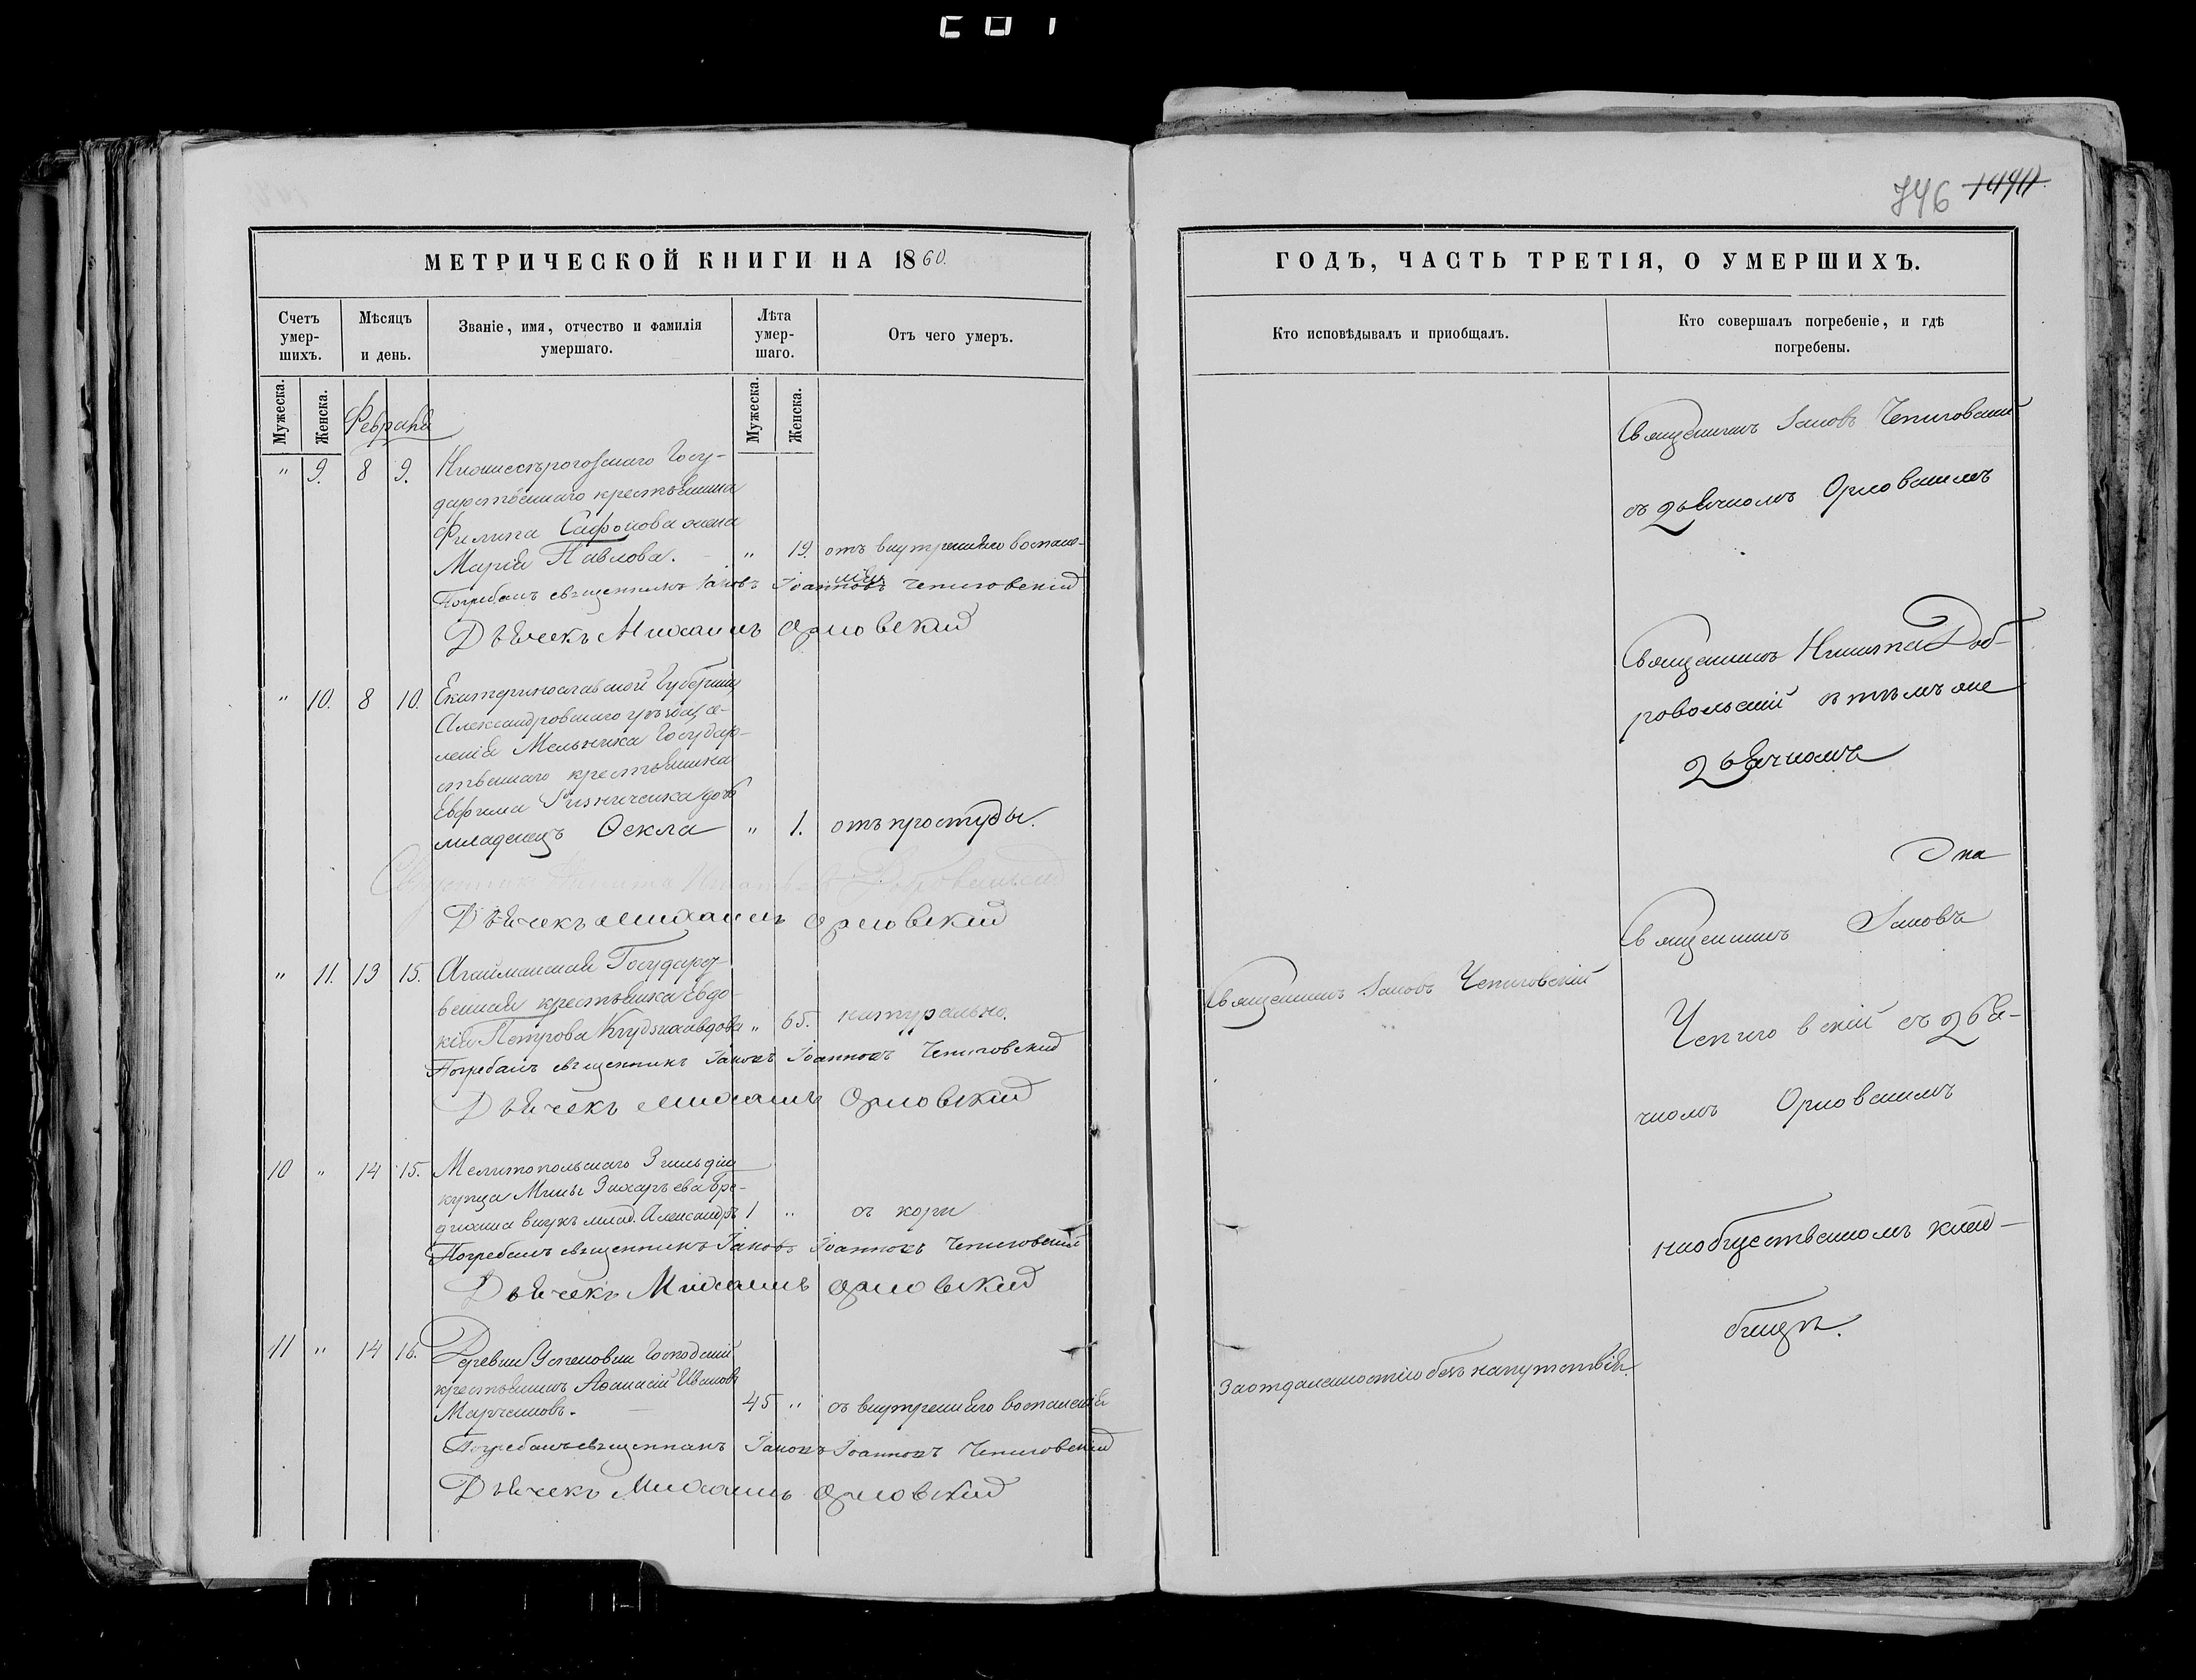 746 1490
МЕТРИЧЕСКОЙ КНИГИ НА 1860.
Счетъ умер-шихъ.
Мѣсяцъ и день.
Званіе, имя, отчество и фамилія умершаго.
Лѣта умер-шаго.
Отъ чего умеръ.
Мужеска.
Женска.
Мужеска.
Женска.
Февраля
" 9. 8 9. Нижнесѣрогозскаго Госу-
дарственнаго крестьянина
Филипа Сафонова жена
Марія Павлова. " 19. отъ внутренняго воспале-
нія
Погребалъ священникъ Іаковъ Іоанновъ Чепиговскій
Дьячекъ Михаилъ Орловскій
" 10. 8 10. Екатеринославской Губерніи
Александровскаго уѣзда се-
ленія Государ-
ственнаго крестьянина
Евфима дочь
младенецъ Ѳекла " 1. отъ простуды.
Священникъ Никита Добровольскій
Дьячекъ Михаилъ Орловскій
" 11. 13 15. Агайманская Государст-
венная крестьянка Евдо-
кія Петрова " 65. натурально.
Погребалъ священникъ Іаковъ Іоанновъ Чепиговскій
Дьячекъ Михаилъ Орловскій
10 " 14 15. Мелитопольскаго 3 гильдіи
купца Мины Захарьева Бре-
внукъ млад. Александръ 1 " отъ кори
Погребалъ священникъ Іаковъ Іоанновъ Чепиговскій
Дьячекъ Михаилъ Орловскій
11 " 14 16. Деревни Успеновки Господскій
крестьянинъ Аѳанасій Ивановъ
Марченковъ. 45 " отъ внутренняго воспаленія
Погребалъ священникъ Іаковъ Іоанновъ Чепиговскій
Дьячекъ Михаилъ Орловскій
ГОДЪ, ЧАСТЬ ТРЕТІЯ, О УМЕРШИХЪ.
Кто исповѣдывалъ и пріобщалъ.
Кто совершалъ погребеніе, и гдѣ
погребены.
Священникъ Іаковъ Чепиговскій
съ дьячкомъ Орловскимъ
Священникъ Никита Доб-
ровольскій съ тѣмъ же
дьячкомъ
Священникъ Іаковъ
Священникъ Іаковъ Чепиговскій
Чепиговскій съ дья-
чкомъ Орловскимъ
на общественномъ клад-
бищѣ.
За отдаленностію безъ напутствія.